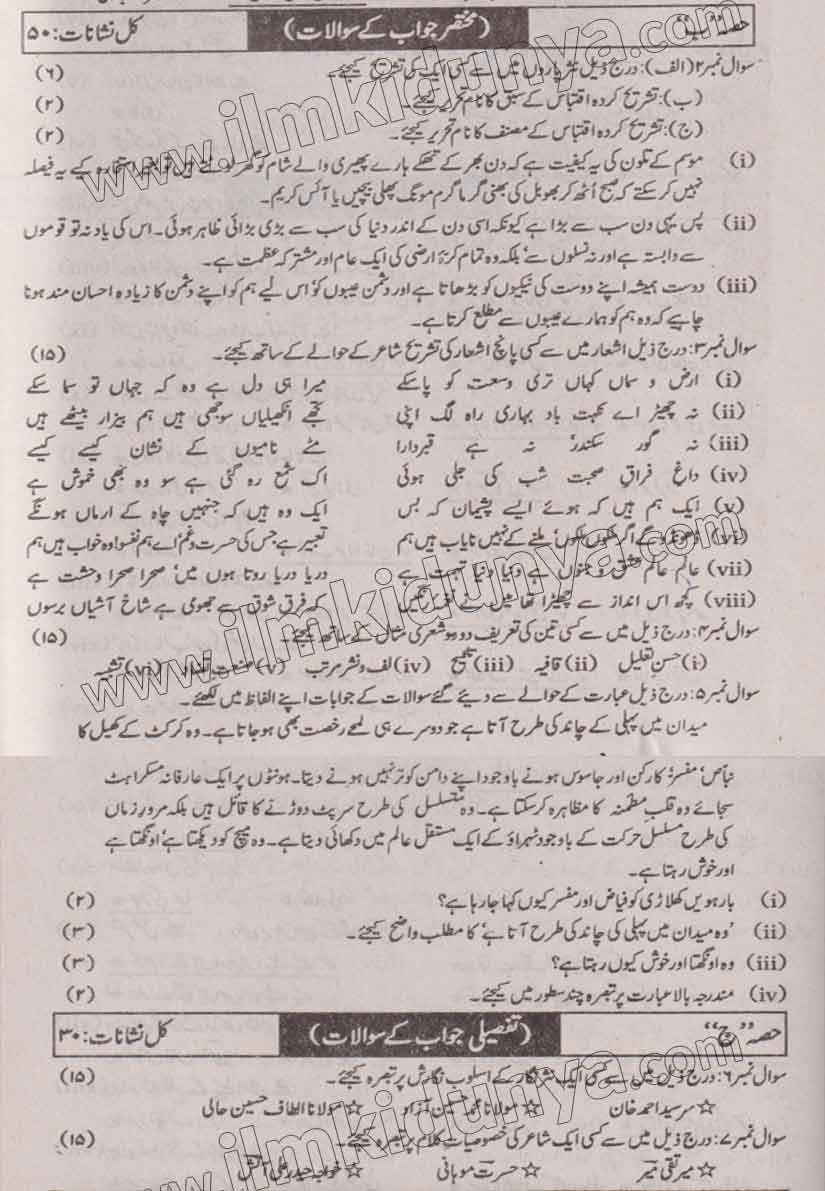 حصہ "ب" (مختصر جواب کے سوالات) کل نشانات: ۵۰
سوال نمبر ۲ (الف): درج ذیل نثر پاروں میں سے کسی ایک کی تشریح کیجئے۔ (۶)
(ب): تشریح کردہ اقتباس کے سبق کا نام تحریر کیجئے۔ (۲)
(ج): تشریح کردہ اقتباس کے مصنف کا نام تحریر کیجئے۔ (۲)
(i) موسم کے تلون کی یہ کیفیت ہے کہ دن بھر کے تھکے ہارے پھیری والے شام کو گھر لوٹتے ہیں تو بغیر استخارہ کیے یہ فیصلہ
نہیں کر سکتے کہ صبح اُٹھ کر بھوبل کی بھنی گرما گرم مونگ پھلی بیچیں یا آئس کریم۔
(ii) پس یہی دن سب سے بڑا ہے کیونکہ اسی دن کے اندر دنیا کی سب سے بڑی بڑائی ظاہر ہوئی۔ اس کی یاد نہ تو قوموں
سے وابستہ ہے اور نہ نسلوں سے، بلکہ وہ تمام کرۂ ارضی کی ایک عام اور مشترکہ عظمت ہے۔
(iii) دوست ہمیشہ اپنے دوست کی نیکیوں کو بڑھاتا ہے اور دشمن عیبوں کو، اس لیے ہم کو اپنے دشمن کا زیادہ احسان مند ہونا
چاہیے کہ وہ ہم کو ہمارے عیبوں سے مطلع کرتا ہے۔
سوال نمبر ۳: درج ذیل اشعار میں سے کسی پانچ اشعار کی تشریح شاعر کے حوالے کے ساتھ کیجئے۔ (۱۵)
(i) ارض و سماں کہاں تری وسعت کو پاسکے میرا ہی دل ہے وہ کہ جہاں تو سما سکے
(ii) نہ چھیڑ اے نکہت باد بہاری راہ لگ اپنی تجھے انکھیلیاں سوجھی ہیں ہم بیزار بیٹھے ہیں
(iii) نہ گور سکندر نہ ہے قبر دارا مٹے نامیوں کے نشان کیسے کیسے
(iv) داغ فراقِ صحبت شب کی جلی ہوئی اک شمع رہ گئی ہے سو وہ بھی خموش ہے
(v) ایک ہم ہیں کہ ہوئے ایسے پشیمان کہ بس ایک وہ ہیں کہ جنہیں چاہ کے ارماں ہونگے
(vi) ڈھونڈوگے اگر ملکوں ملکوں، ملنے کے نہیں نایاب ہیں ہم تعبیر ہے جس کی حسرت و غم، اے ہم نفسو! وہ خواب ہیں ہم
(vii) عالم عالم عشق و جنوں ہے دنیا دنیا تہمت ہے دریا دریا روتا ہوں میں، صحرا صحرا وحشت ہے
(viii) کچھ اس انداز سے چھیڑا تھا میں نے نغمۂ رنگیں کہ فرقِ شوق سے جھومی ہے شاخِ آشیاں برسوں
سوال نمبر ۴: درج ذیل میں سے کسی تین کی تعریف دو دو شعری مثال کے ساتھ کیجئے۔ (۱۵)
(i) حسن تعلیل (ii) قافیہ (iii) تلمیح (iv) لف و نشر مرتب (v) صنعت تضاد (vi) تشبیہ
سوال نمبر ۵: درج ذیل عبارت کے حوالے سے دیئے گئے سوالات کے جوابات اپنے الفاظ میں لکھئے۔
میدان میں پہلی کے چاند کی طرح آتا ہے جو دوسرے ہی لمحے رخصت بھی ہو جاتا ہے۔ وہ کرکٹ کے کھیل کا
نباض، مفسر، کارکن اور جاسوس ہونے باوجود اپنے دامن کو تر نہیں ہونے دیتا۔ ہونٹوں پر ایک عارفانہ مسکراہٹ
سجائے وہ قلبِ مطمئنہ کا مظاہرہ کر سکتا ہے۔ وہ متسلسل کی طرح سرپٹ دوڑنے کا قائل ہیں بلکہ مرورِ زماں
کی طرح مسلسل حرکت کے باوجود ٹھہراؤ کے ایک مستقل عالم میں دکھائی دیتا ہے۔ وہ میچ کو دیکھتا ہے، اونگھتا ہے
اور خوش رہتا ہے۔
(i) بارہویں کھلاڑی کو فیاض اور مفسر کیوں کہا جا رہا ہے؟ (۲)
(ii) 'وہ میدان میں پہلی کی چاند کی طرح آتا ہے' کا مطلب واضح کیجئے۔ (۳)
(iii) وہ اونگھتا اور خوش کیوں رہتا ہے؟ (۳)
(iv) مندرجہ بالا عبارت پر تبصرہ چند سطور میں کیجئے۔ (۲)
حصہ "ج" (تفصیلی جواب کے سوالات) کل نشانات: ۳۰
سوال نمبر ۶: درج ذیل میں سے کسی ایک نثر نگار کے اسلوب نگارش پر تبصرہ کیجئے۔ (۱۵)
☆ سرسید احمد خان ☆ مولانا محمد حسین آزاد ☆ مولانا الطاف حسین حالی
سوال نمبر ۷: درج ذیل میں سے کسی ایک شاعر کی خصوصیات کلام پر تبصرہ کیجئے۔ (۱۵)
☆ میر تقی میر ☆ حسرت موہانی ☆ خواجہ حیدر علی آتش
www.ilmkidunya.com
www.ilmkidunya.com
www.ilmkidunya.com